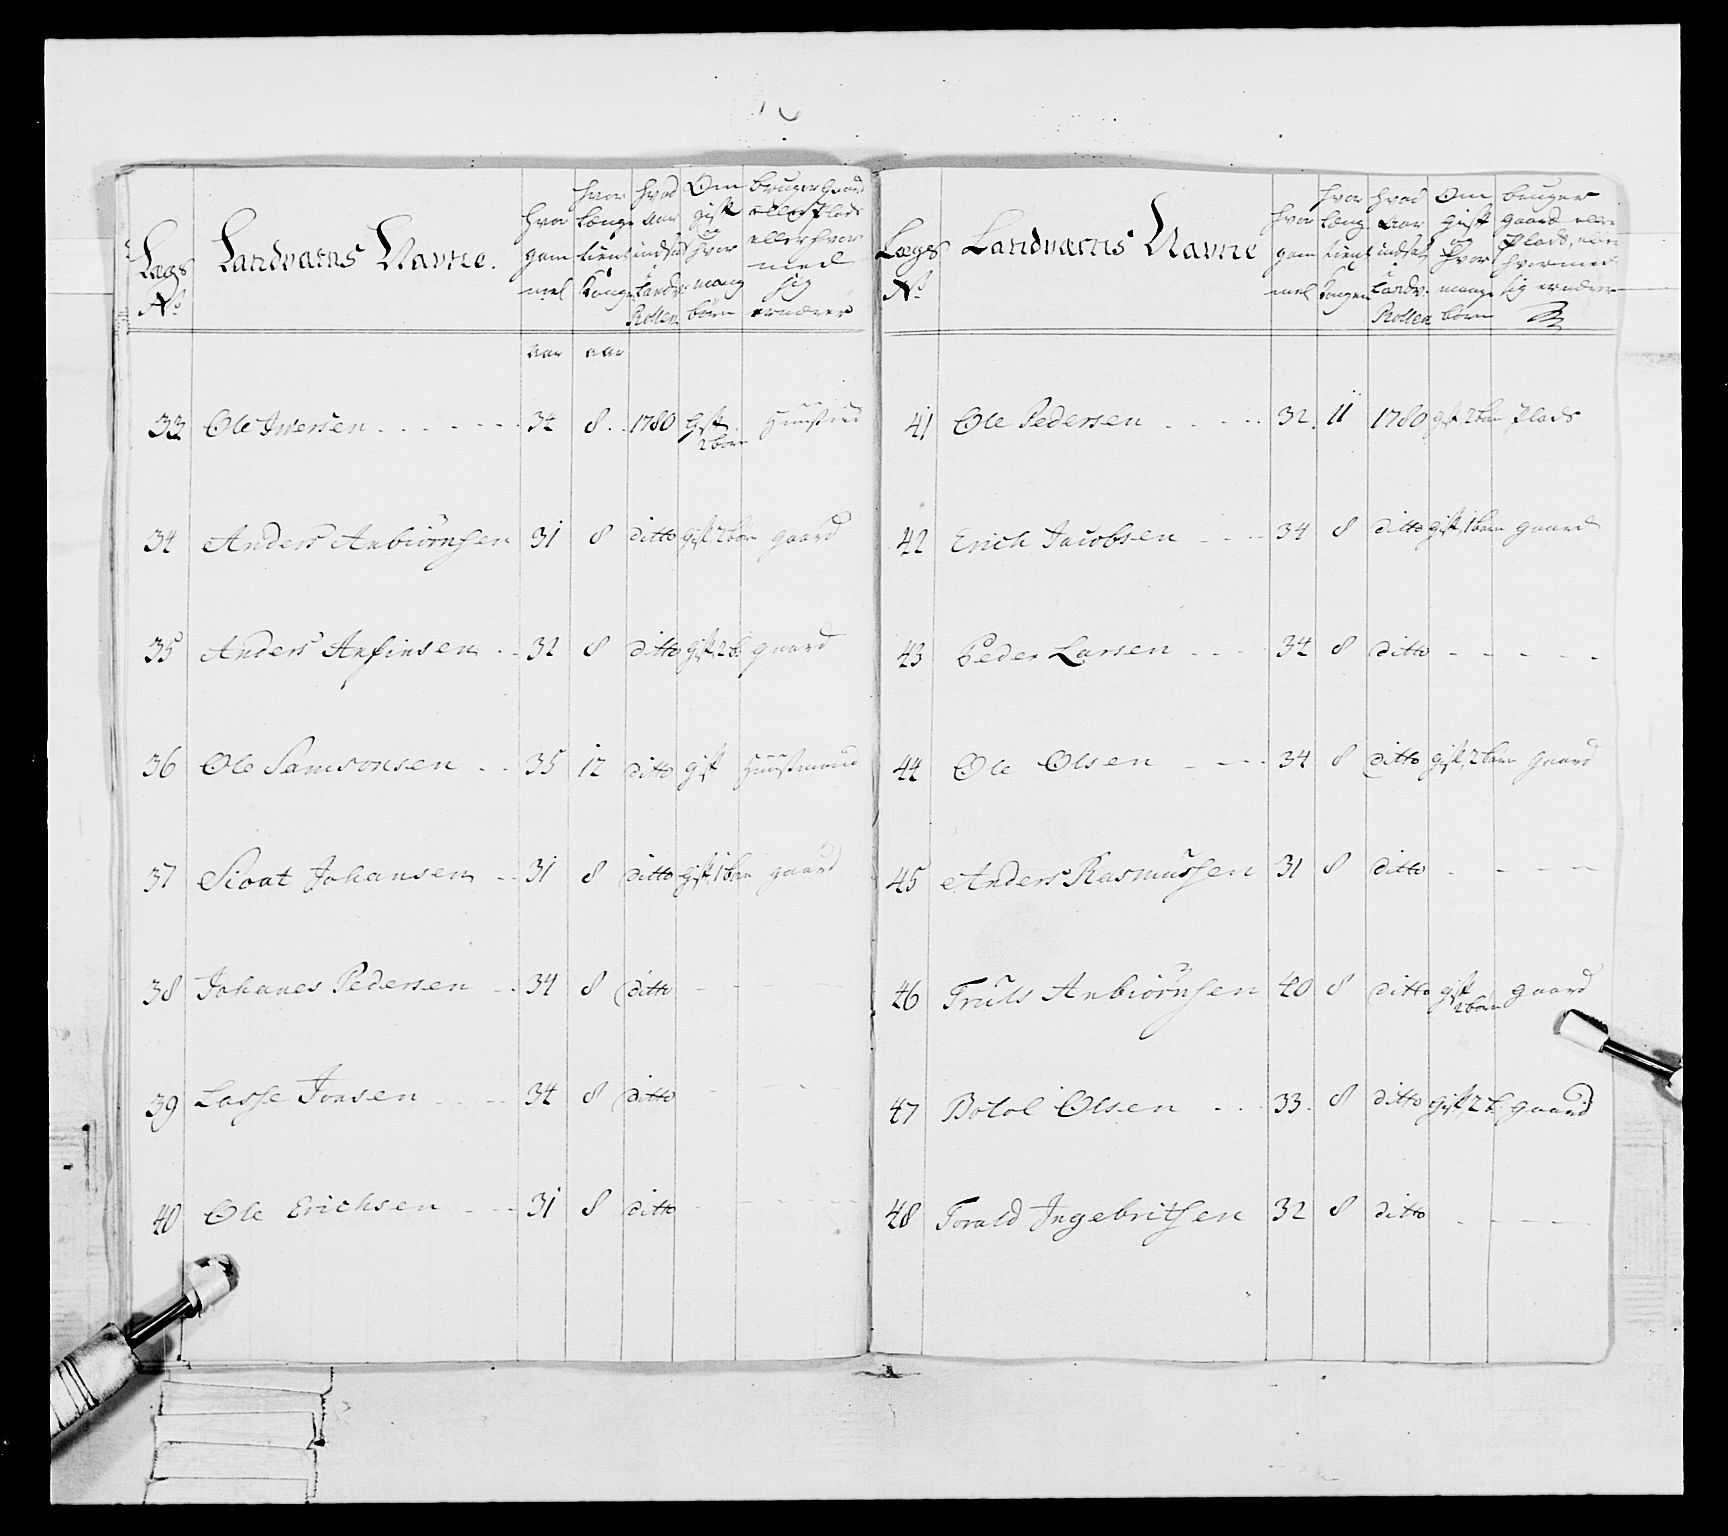 Lægs No | Landværns Navne. | hvor gammel | hvor længe tient Kongen | hvad aar indsat i Landv: Rollen | Om gift og hvor mang børn | bruger Gaard eller Plads eller hvor med sig ernærer
aar aar
33 Ole Iversen 34 8 1780 gift 2 børn Huusmd
34 Anders Anbiörnsen 31 8 ditto gift 2 børn gaard
35 Anders Anfinsen 32 8 ditto gift, 2 b. gaard
36 Ole Samsonsen 35 12 ditto gift Huusmand
37 Sioat Johansen 31 8 ditto gift, 1 barn gaard
38 Johanes Pedersen 34 8 ditto - - - -
39 Lasse Jonsen 34 8 ditto - - - -
40 Ole Erichsen 31 8 ditto - - - -
Lægs No | Landværns Navne | hvor gammel | hvor læng tient Kongen | hvad aar indsat i Landv: Rollen | Om gift og hvor mange børn | bruger gaard eller Plads, eller hvormed sig ernærer
41 Ole Pedersen 32 11 1780 gift, 2 børn Plads
42 Erich Jacobsen 34 8 ditto gift, 1 barn gaard
43 Peder Larsen 34 8 ditto - - - - -
44 Ole Olsen 34 8 ditto gift, 2 børn gaard
45 Anders Rasmussen 31 8 ditto - - - -
46 Truls Anbiörnsen 40 8 ditto gift 2 børn gaard
47 Botol Olsen 33 8 ditto gift, 2 b. gaard
48 Torald Ingebritsen 32 8 ditto - - - -